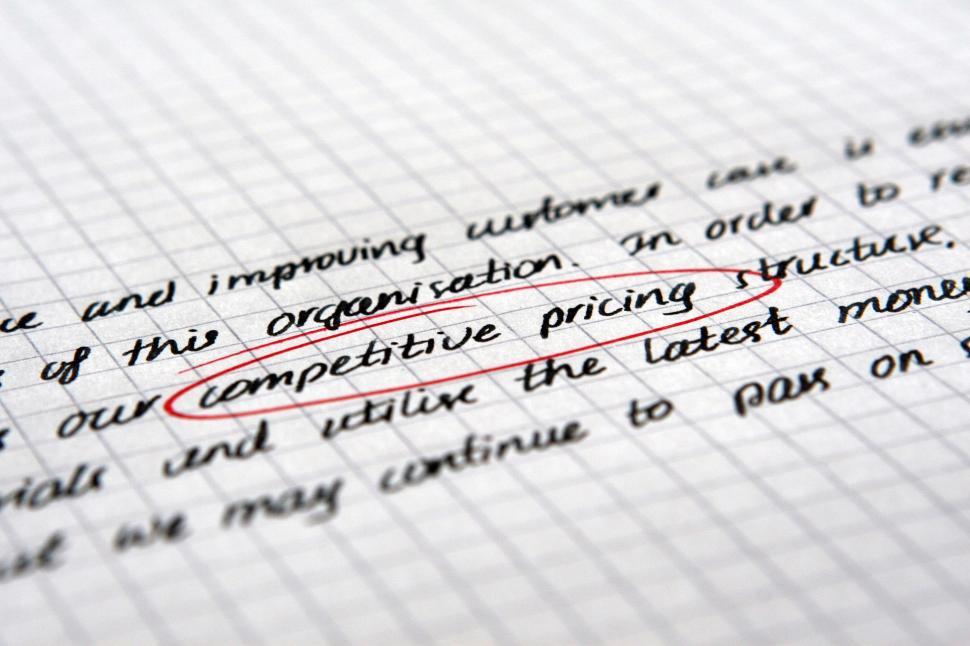 and improving customer care is
of this organisation. In order to re
our competitive pricing structure.
rials and utilise the latest money
we may continue to pass on s